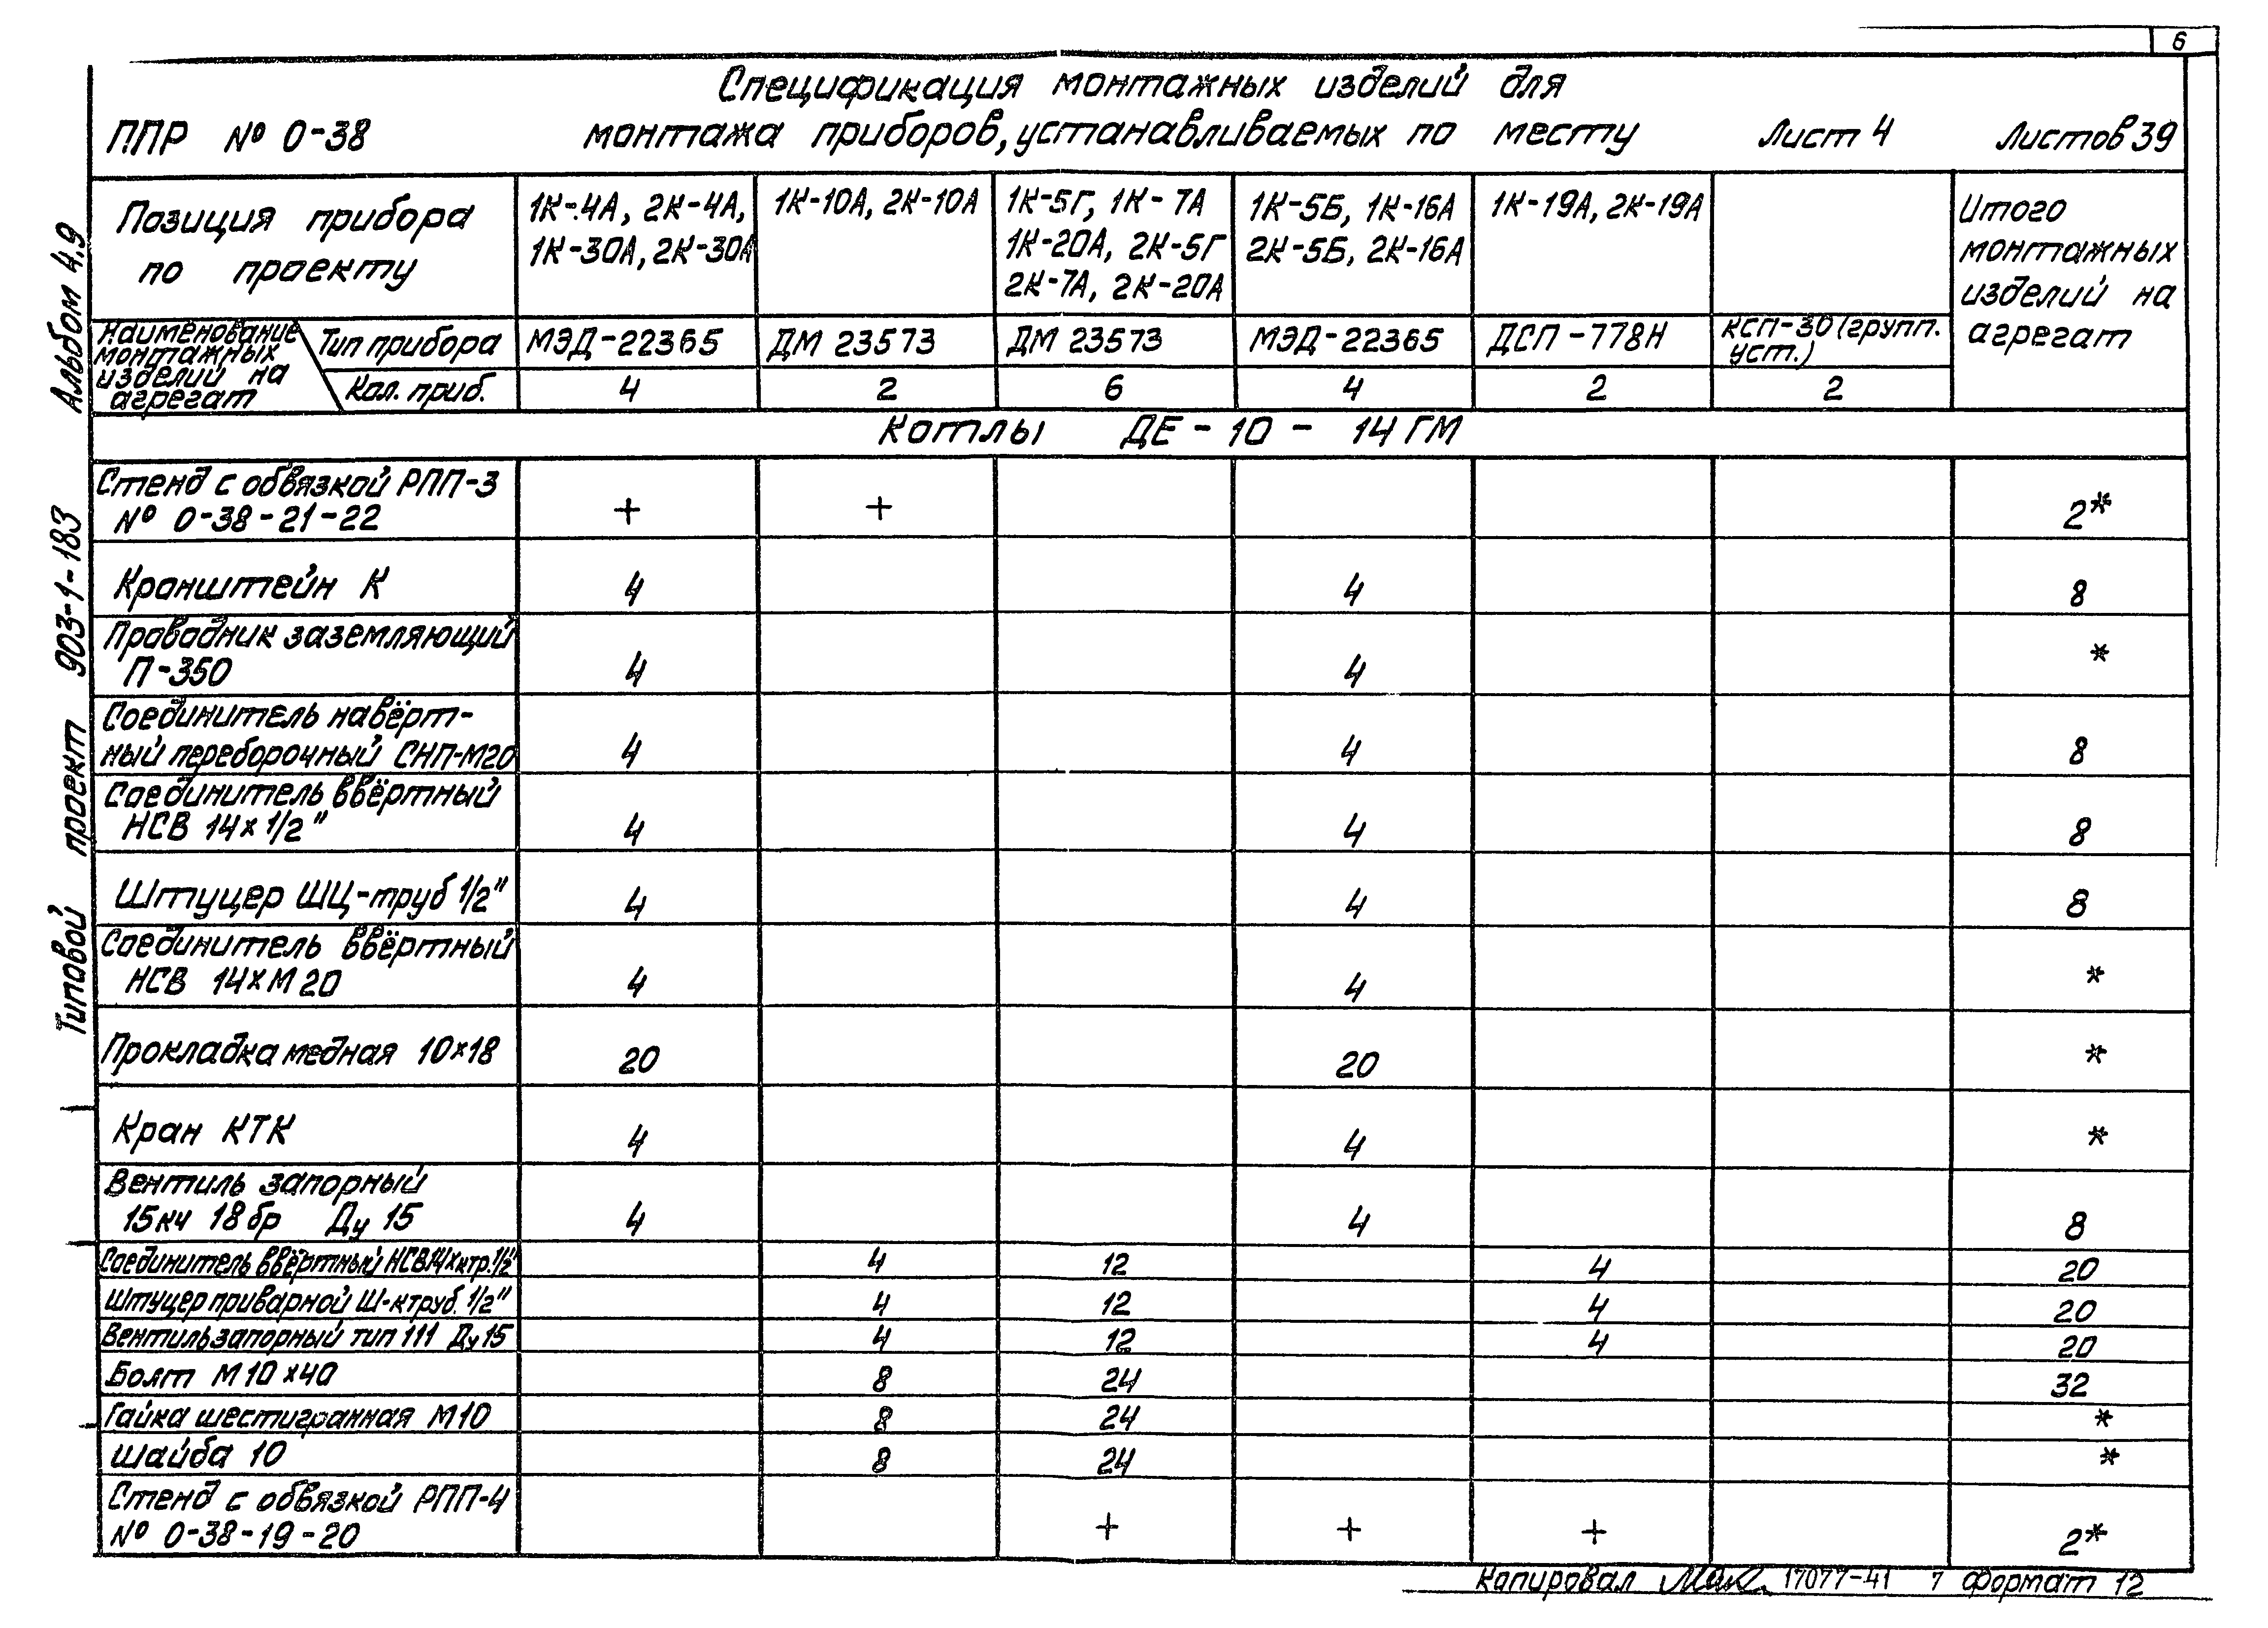 6
Спецификация монтажных изделий для
ППР № 0-38 монтажа приборов, устанавливаемых по месту Лист 4 Листов 39
Позиция прибора
по проекту
1К-4А, 2К-4А,
1К-30А, 2К-30А
1К-10А, 2К-10А
1К-5Г, 1К-7А
1К-20А, 2К-5Г
2К-7А, 2К-20А
1К-5Б, 1К-16А
2К-5Б, 2К-16А
1К-19А, 2К-19А
Итого
монтажных
изделий на
агрегат
Наименование
монтажных
изделий на
агрегат
Тип прибора МЭД-22365 ДМ 23573 ДМ 23573 МЭД-22365 ДСП-778Н КСП-30 (групп.
уст.)
Кол. приб. 4 2 6 4 2 2
Котлы ДЕ-10-14ГМ
Стенд с обвязкой РПП-3
№ 0-38-21-22 + + 2*
Кронштейн К 4 4 8
Проводник заземляющий
П-350 4 4 *
Соединитель навёрт-
ный переборочный СНП-М20 4 4 8
Соединитель ввёртный
НСВ 14х1/2" 4 4 8
Штуцер ШЦ-труб 1/2" 4 4 8
Соединитель ввёртный
НСВ 14хМ20 4 4 *
Прокладка медная 10х18 20 20 *
Кран КТК 4 4 *
Вентиль запорный
15кч 18бр Ду 15 4 4 8
Соединитель ввёртный НСВ14хктр.1/2" 4 12 4 20
Штуцер приварной Ш-ктруб. 1/2" 4 12 4 20
Вентиль запорный тип 111 Ду15 4 12 4 20
Болт М10х40 8 24 32
Гайка шестигранная М10 8 24 *
Шайба 10 8 24 *
Стенд с обвязкой РПП-4
№ 0-38-19-20 + + + 2*
Копировал 17077-41 7 Формат 12
Типовой проект 903-1-183 Альбом 4.9